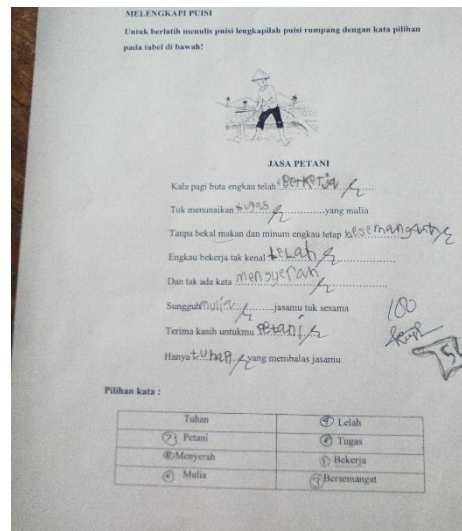 MELENGKAPI PUISI
Untuk berlatih menulis puisi lengkapilah puisi rumpang dengan kata pilihan
pada tabel di bawah!
JASA PETANI
Kala pagi buta engkau telah Berkerja
Tuk menunaikan tugas yang mulia
Tanpa bekal makan dan minum engkau tetap besemangat
Engkau bekerja tak kenal lelah
Dan tak ada kata menyerah
Sungguh mulia jasamu tuk sesama
Terima kasih untukmu petani
Hanya tuhan yang membalas jasamu
100
Pilihan kata :
Tuhan Lelah
Petani Tugas
Menyerah Bekerja
Mulia Bersemangat